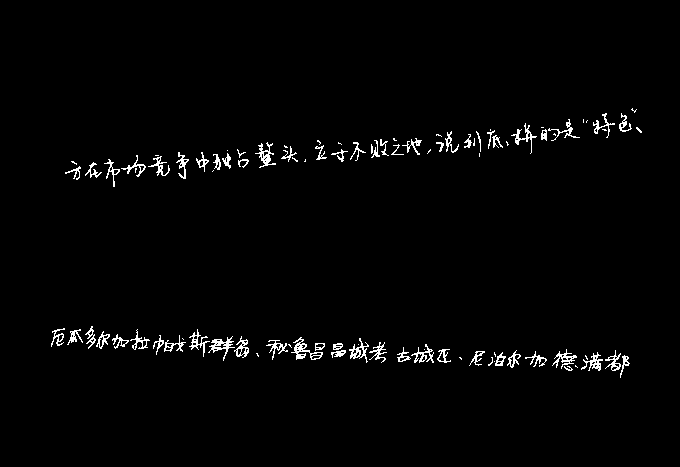 方在市场竞争中独占鳌头，立于不败之地，说到底，拼的是“特色”、
厄瓜多尔加拉帕戈斯群岛、秘鲁昌昌城考古城区、尼泊尔加德满都